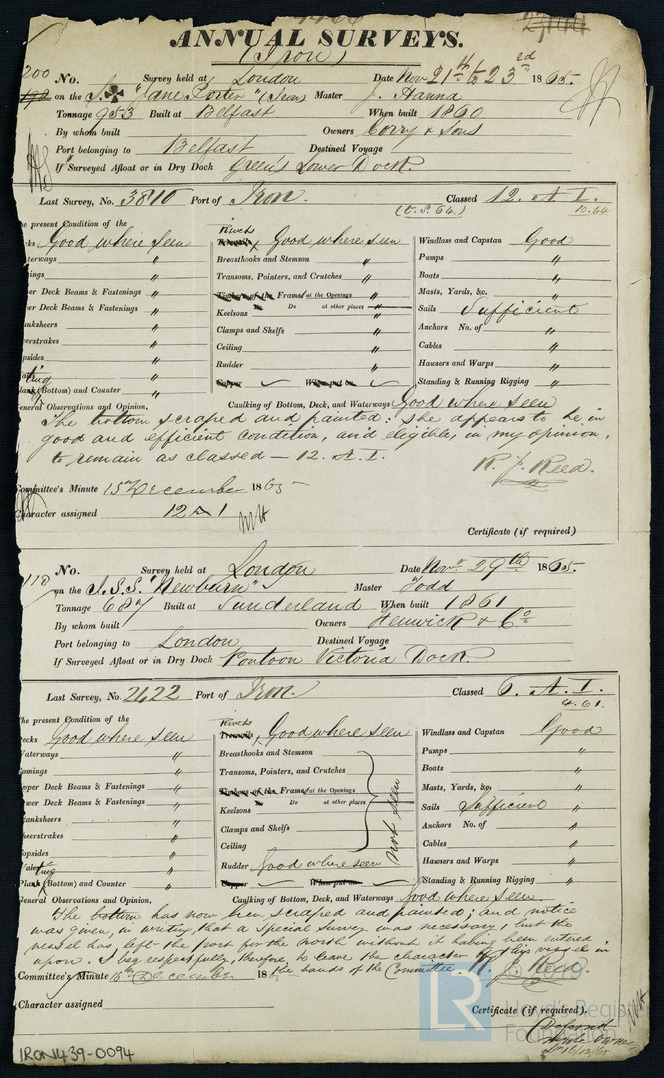 ANNUAL SURVEYS.
(Iron)
200 No. Survey held at London Date Nov 21st to 23rd 1865.
192 on the S. "Jane Porter" (Iron) Master J. Hanna
Tonnage 953 Built at Belfast When built 1860
By whom built Owners Corry & Sons
Port belonging to Belfast Destined Voyage
If Surveyed Afloat or in Dry Dock Green's Lower Dock.
Last Survey, No. 3810 Port of Iron. Classed 12. A.1.
(t.S. 64.) 10.64
he present Condition of the
cks Good where seen
terways "
ings "
er Deck Beams & Fastenings "
er Deck Beams & Fastenings "
nksheers "
erstrakes "
psides "
ting
lank (Bottom) and Counter "
Rivets
Treenails Good where seen
Breasthooks and Stemson "
Transoms, Pointers, and Crutches "
Timbers of the Frames at the Openings "
Do at other places "
Keelsons "
Clamps and Shelfs "
Ceiling "
Rudder "
Copper When put on
Windlass and Capstan Good
Pumps "
Boats "
Masts, Yards, &c. "
Sails Sufficient
Anchors No. of "
Cables "
Hausers and Warps "
Standing & Running Rigging "
eneral Observations and Opinion, Caulking of Bottom, Deck, and Waterways Good where seen
The bottom scraped and painted: She appears to be in
good and efficient condition, and eligible, in my opinion,
to remain as classed — 12. A.1.
R. J. Reed.
Committee's Minute 15 December 1865
Character assigned 12 A 1
Certificate (if required)
118 No. Survey held at London Date Novr 29th 1865.
on the I.S.S. "Newburn" Master Todd
Tonnage 687 Built at Sunderland When built 1861
By whom built Owners Fenwick & Co
Port belonging to London Destined Voyage
If Surveyed Afloat or in Dry Dock Pontoon Victoria Dock.
Last Survey, No. 2422 Port of Iron. Classed 6. A.1.
4.61.
he present Condition of the
ecks Good where seen
Waterways "
omings "
pper Deck Beams & Fastenings "
wer Deck Beams & Fastenings "
lanksheers "
heerstrakes "
opsides "
ting
Plank (Bottom) and Counter "
Rivets
Treenails Good where seen
Breasthooks and Stemson
Transoms, Pointers, and Crutches
Timbers of the Frames at the Openings
Do at other places
Keelsons
Clamps and Shelfs
Ceiling
not seen
Rudder Good where seen
Copper When put on
Windlass and Capstan Good
Pumps "
Boats "
Masts, Yards, &c. "
Sails Sufficient
Anchors No. of "
Cables "
Hausers and Warps "
Standing & Running Rigging "
General Observations and Opinion, Caulking of Bottom, Deck, and Waterways Good where seen.
The bottom has now been scraped and painted; and notice
was given, in writing, that a Special Survey was necessary, but the
vessel has left the port for the north without it having been entered
upon. I beg respectfully, therefore, to leave the character of this vessel in
the hands of the Committee. R. J. Reed.
Committee's Minute 15th December 18
Character assigned
Certificate (if required).
Deferred
LR
© 2019
Lloyd's Register
Foundation
IRON1439-0094